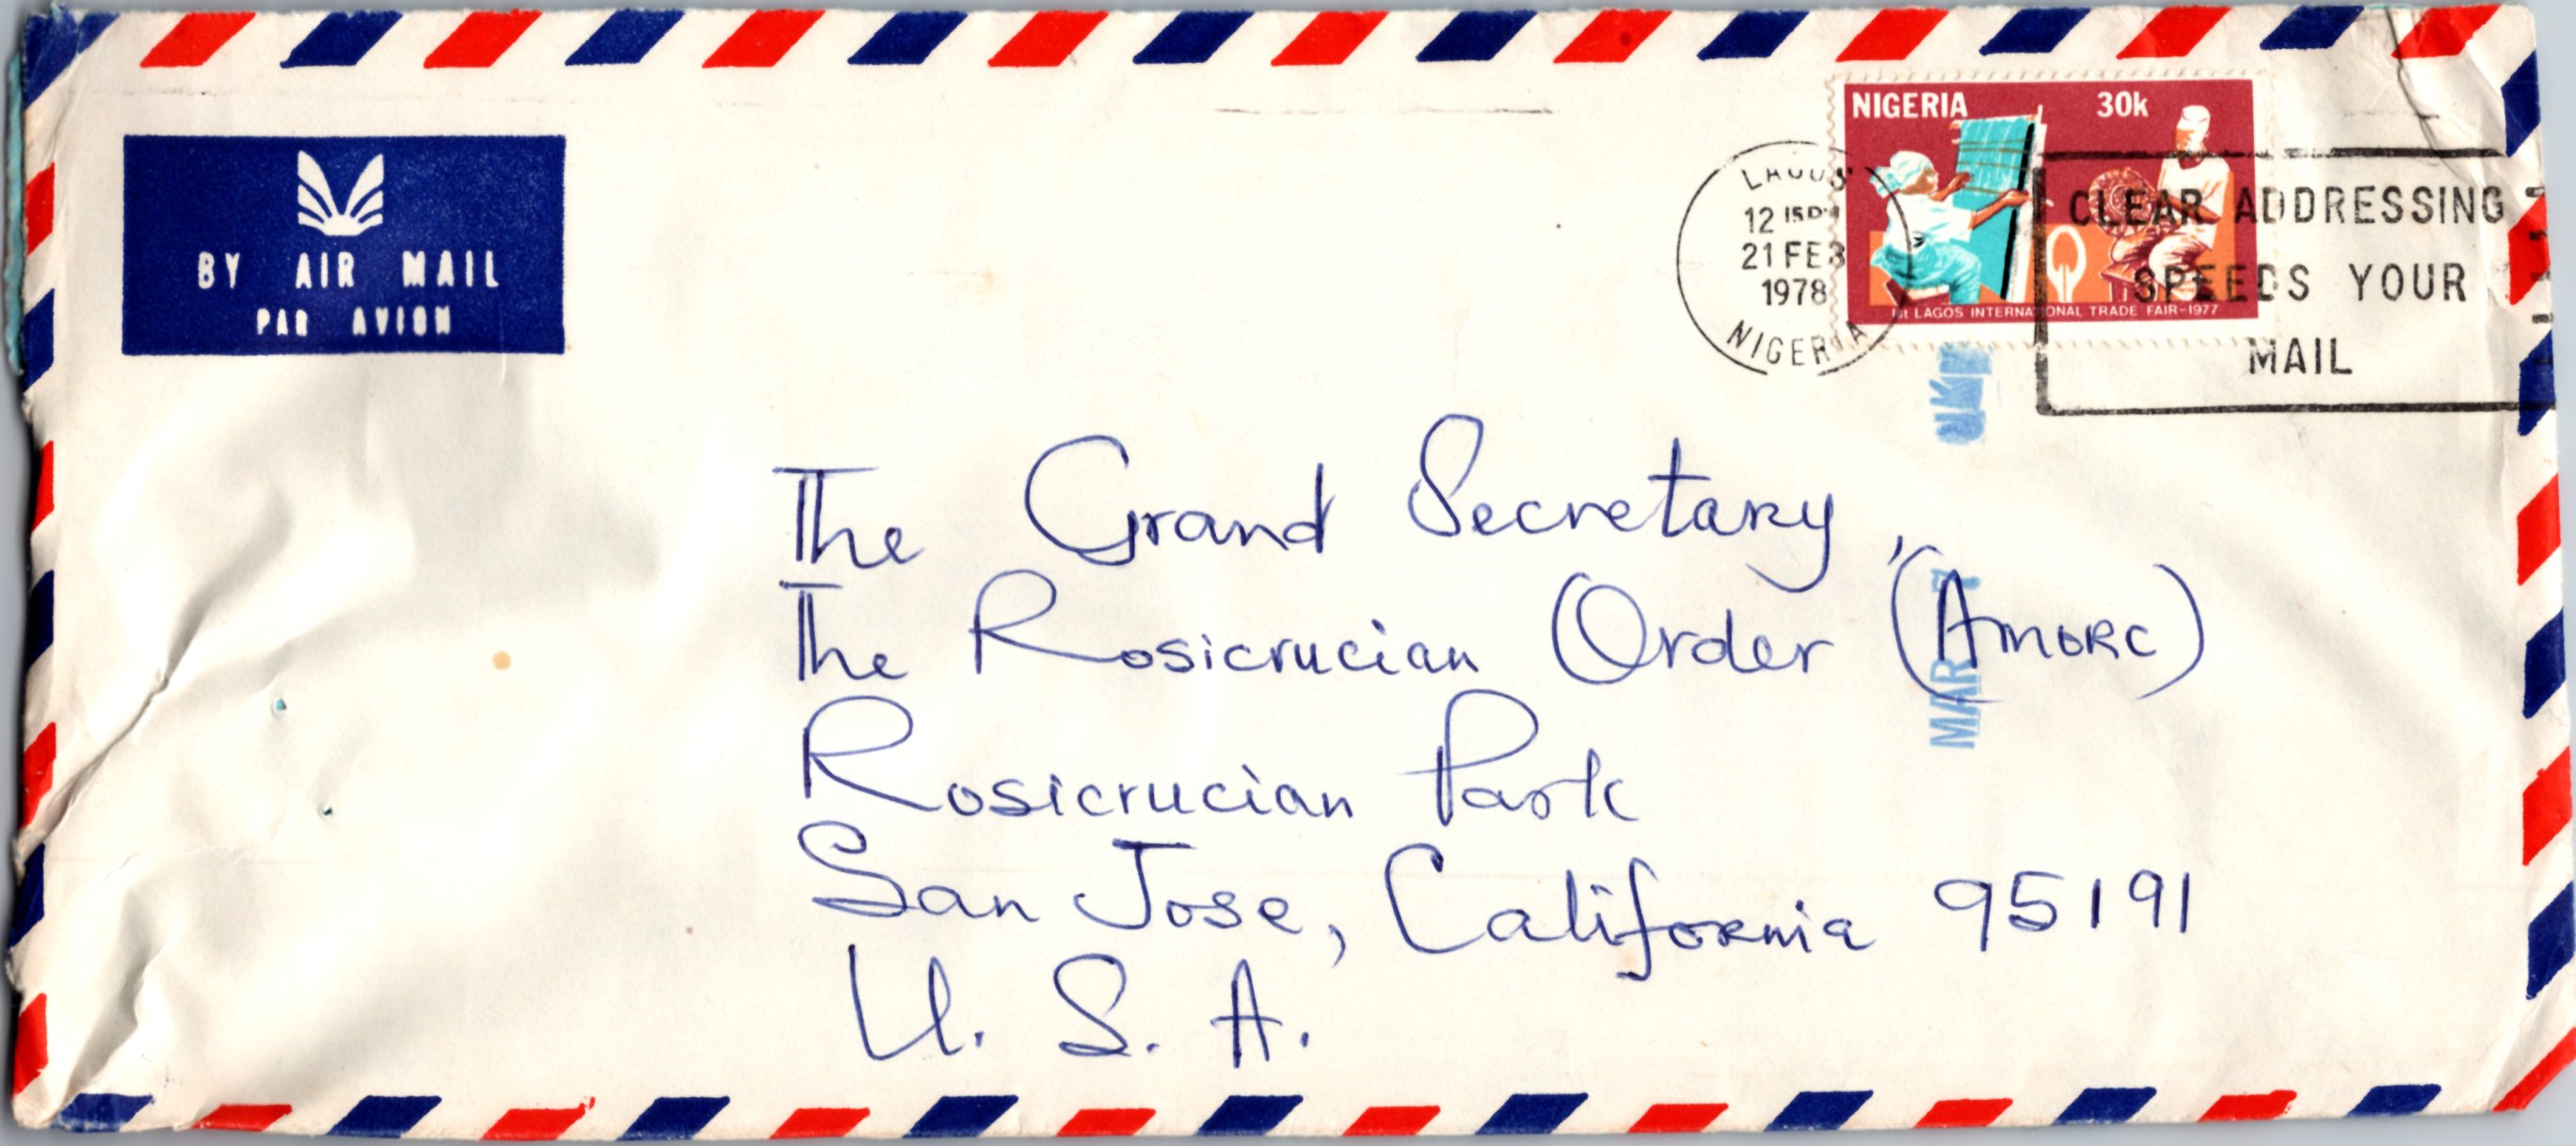 BY AIR MAIL
PAR AVION
NIGERIA 30k
1st LAGOS INTERNATIONAL TRADE FAIR-1977
LAGOS
12 15PM
21 FEB
1978
NIGERIA
CLEAR ADDRESSING
SPEEDS YOUR
MAIL
The Grand Secretary,
The Rosicrucian Order (AMORC)
Rosicrucian Park
San Jose, California 95191
U. S. A.
MAR 7